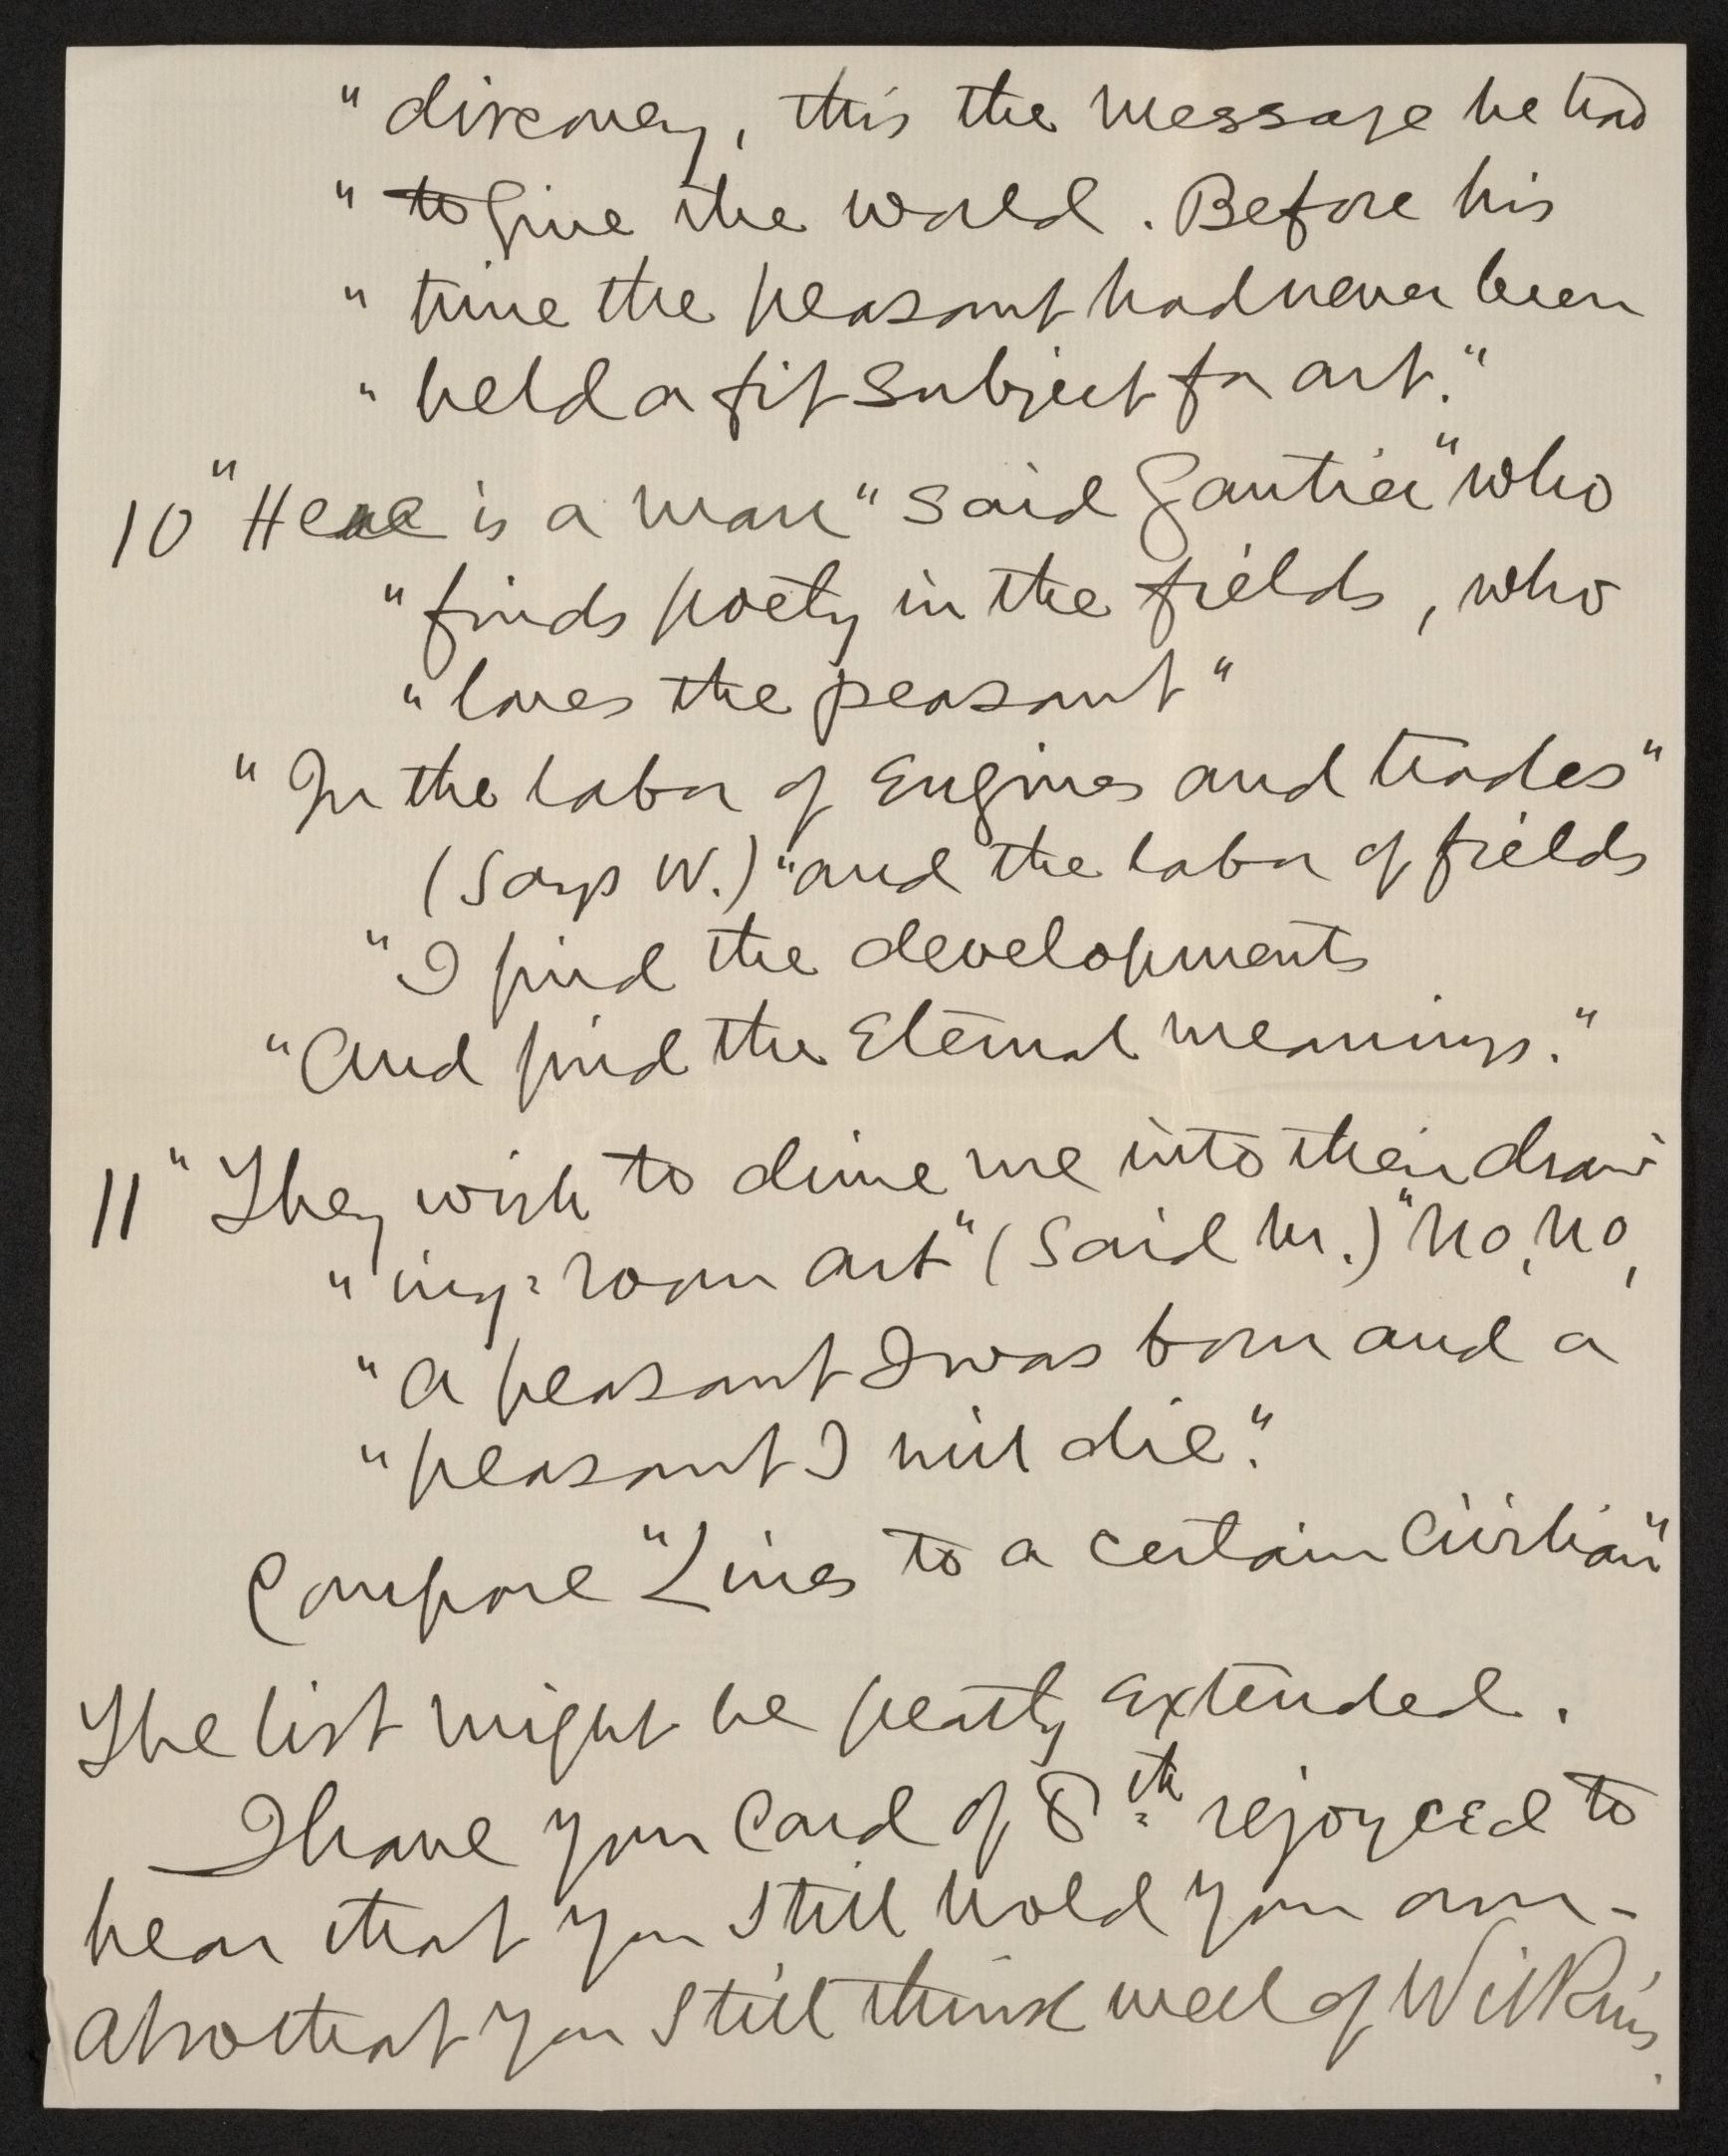 " discovery, this the message he had
" to give the world. Before his
" time the peasant had never been
" held a fit subject for art."
10 "Here is a man" said Gautier "who
" finds poetry in the fields, who
" loves the peasant"
" In the labor of Engines and trades"
(says W.) "and the labor of fields
" I find the developments
" And find the Eternal meanings."
11 "They wish to drive me into their draw
" ing-room art" (said M.) "no, no,
" a peasant I was born and a
" peasant I will die."
Compare "Lines to a certain Civilian"
The list might be greatly extended.
I have your card of 8th rejoyced to
hear that you still hold your own –
also that you still think well of Wilkins.